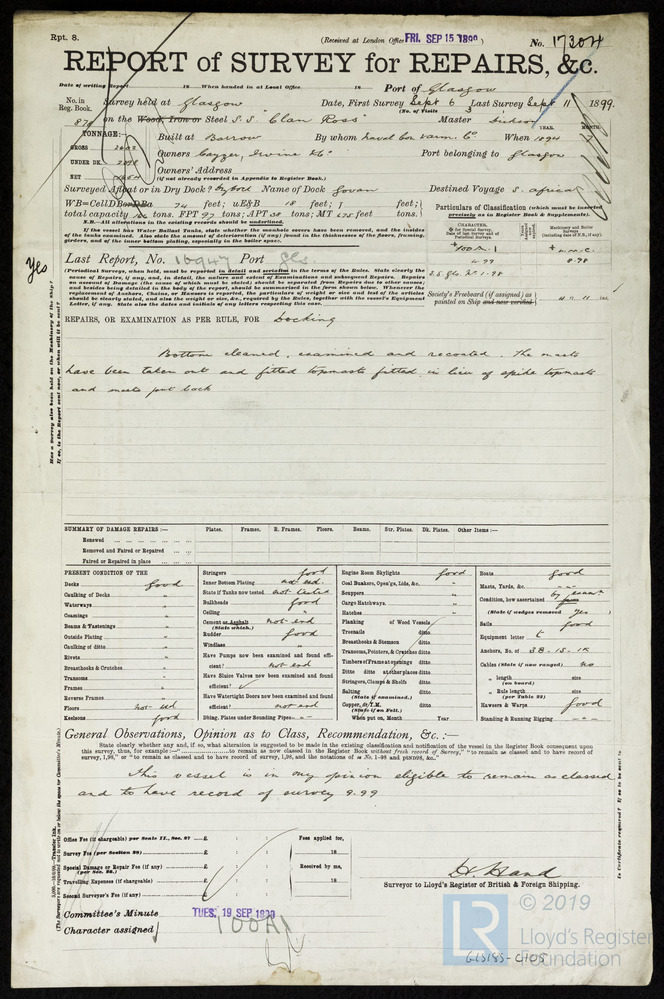 Rpt. 8.
(Received at London Office FRI. SEP 15 1899)
No. 17304
REPORT of SURVEY for REPAIRS, &c.
Date of writing Report 18 When handed in at Local Office 18 Port of Glasgow
No. in Reg. Book. Survey held at Glasgow Date, First Survey Sept 6 Last Survey Sept 11 1899.
(No. of Visits 3
on the Wood, Iron or Steel S.S. "Clan Ross" Master
TONNAGE:— Built at Barrow By whom Naval Con & Arm. Co When 1894
YEAR. MONTH.
GROSS Owners Cayzer, Irvine & Co Port belonging to Glasgow
UNDER DK.
NET Owners' Address
(if not already recorded in Appendix to Register Book.)
Surveyed Afloat or in Dry Dock? Dry Dock Name of Dock Govan Destined Voyage S. Africa
WB=CellDBorDBa 74 feet; uE&B 18 feet; f feet;
total capacity tons. FPT 97 tons; APT tons; MT 675 feet tons.
N.B.—All alterations in the existing records should be underlined.
If the vessel has Water Ballast Tanks, state whether the manhole covers have been removed, and the insides
of the tanks examined. Also state the amount of deterioration (if any) found in the thicknesses of the floors, framing,
girders, and of the inner bottom plating, especially in the boiler space.
Particulars of Classification (which must be inserted
precisely as in Register Book & Supplements).
CHARACTER.
Machinery and Boiler Surveys
(including date of N.B., if any).
+ 100 A. 1
4.99
+ L.M.C.
8.98
S.S. Gls. No 1.98
Society's Freeboard (if assigned) as
painted on Ship and now verified
Last Report, No. 16947 Port Gls.
(Periodical Surveys, when held, must be reported in detail and seriatim in the terms of the Rules. State clearly the
cause of Repairs, if any, and, in detail, the nature and extent of Examination and subsequent Repairs. Repairs
on account of Damage (the cause of which must be stated) should be separated from Repairs due to other causes;
and besides being detailed in the body of the report, should be summarised in the form shown below. Whenever the
replacement of Anchors, Chains, or Hawsers is reported, the particulars of weight or size and test of the articles
should be clearly stated, and also the weight or size, &c., required by the Rules, together with the vessel's Equipment
Letter, if any. State also the dates and initials of any letters respecting this case.
REPAIRS, OR EXAMINATION AS PER RULE, FOR Docking
Bottom cleaned, examined and recoated. The masts
have been taken out and fitted topmasts fitted in lieu of spike topmasts
and masts put back
Yes
Has a Survey also been held on the Machinery of the Ship?
If so, is the Report sent now, or when will it be sent?
SUMMARY OF DAMAGE REPAIRS :— Plates. Frames. R. Frames. Floors. Beams. Str. Plates. Dk. Plates. Other Items :—
Renewed
Removed and Faired or Repaired
Faired or Repaired in place
PRESENT CONDITION OF THE
Decks good
Caulking of Decks "
Waterways "
Coamings "
Beams & Fastenings "
Outside Plating "
Caulking of ditto "
Rivets "
Breasthooks & Crutches "
Transoms "
Frames "
Reverse Frames "
Floors not exd
Keelsons good
Stringers good
Inner Bottom Plating not exd.
State if Tanks now tested not tested
Bulkheads good
Ceiling "
Cement or Asphalt not exd
(State which.)
Rudder good
Windlass "
Have Pumps now been examined and found efficient? not exd
Have Sluice Valves now been examined and found efficient? ✓
Have Watertight Doors now been examined and found efficient? not exd
Dblng. Plates under Sounding Pipes " "
Engine Room Skylights good
Coal Bunkers, Open'gs, Lids, &c. "
Scuppers "
Cargo Hatchways "
Hatches "
Planking of Wood Vessels
Treenails ditto
Breasthooks & Stemson ditto
Transoms, Pointers, & Crutches ditto
Timbers of Frame at openings ditto
Ditto ditto at other places ditto
Stringers, Clamps & Shelfs ditto
Salting ditto
(State if examined.)
Copper, or Y.M. ditto
(State if on Felt.)
When put on, Month Year
Boats good
Masts, Yards, &c. " "
Condition, how ascertained by exam n
(State if wedges removed yes )
Sails good
Equipment letter t
Anchors, No. of 3B. 1S. 1K
Cables (State if now ranged) no
" length size
(on board)
" Rule length size
(per Table 22)
Hawsers & Warps good
Standing & Running Rigging " "
General Observations, Opinion as to Class, Recommendation, &c. :—
State clearly whether any, and if so, what alteration is suggested to be made in the existing classification and notification of the vessel in the Register Book consequent upon
this survey, thus, for example :—" to remain as now classed in the Register Book without fresh record of Survey," "to remain classed and to have record of
survey, 1,98," or "to remain classed and to have record of survey, 1,98, and the notations of ss No. 1-98 and ptND98, &c."
This vessel is in my opinion eligible to remain as classed
and to have record of survey 9.99
Office Fee (if chargeable) per Scale II., Sec. 27 £ : :
Survey Fee (per Section 28) £ : :
Special Damage or Repair Fee (if any) (per Sec. 28.) £ : :
Travelling Expenses (if chargeable) £ : :
Second Surveyor's Fee (if any) £ : :
Fees applied for,
18
Received by me,
18
Surveyor to Lloyd's Register of British & Foreign Shipping.
Committee's Minute TUES. 19 SEP 1899
Character assigned 100A1
Is Certificate required? If so to be sent to
© 2019
LR
Lloyd's Register
Foundation
GLS185-0108